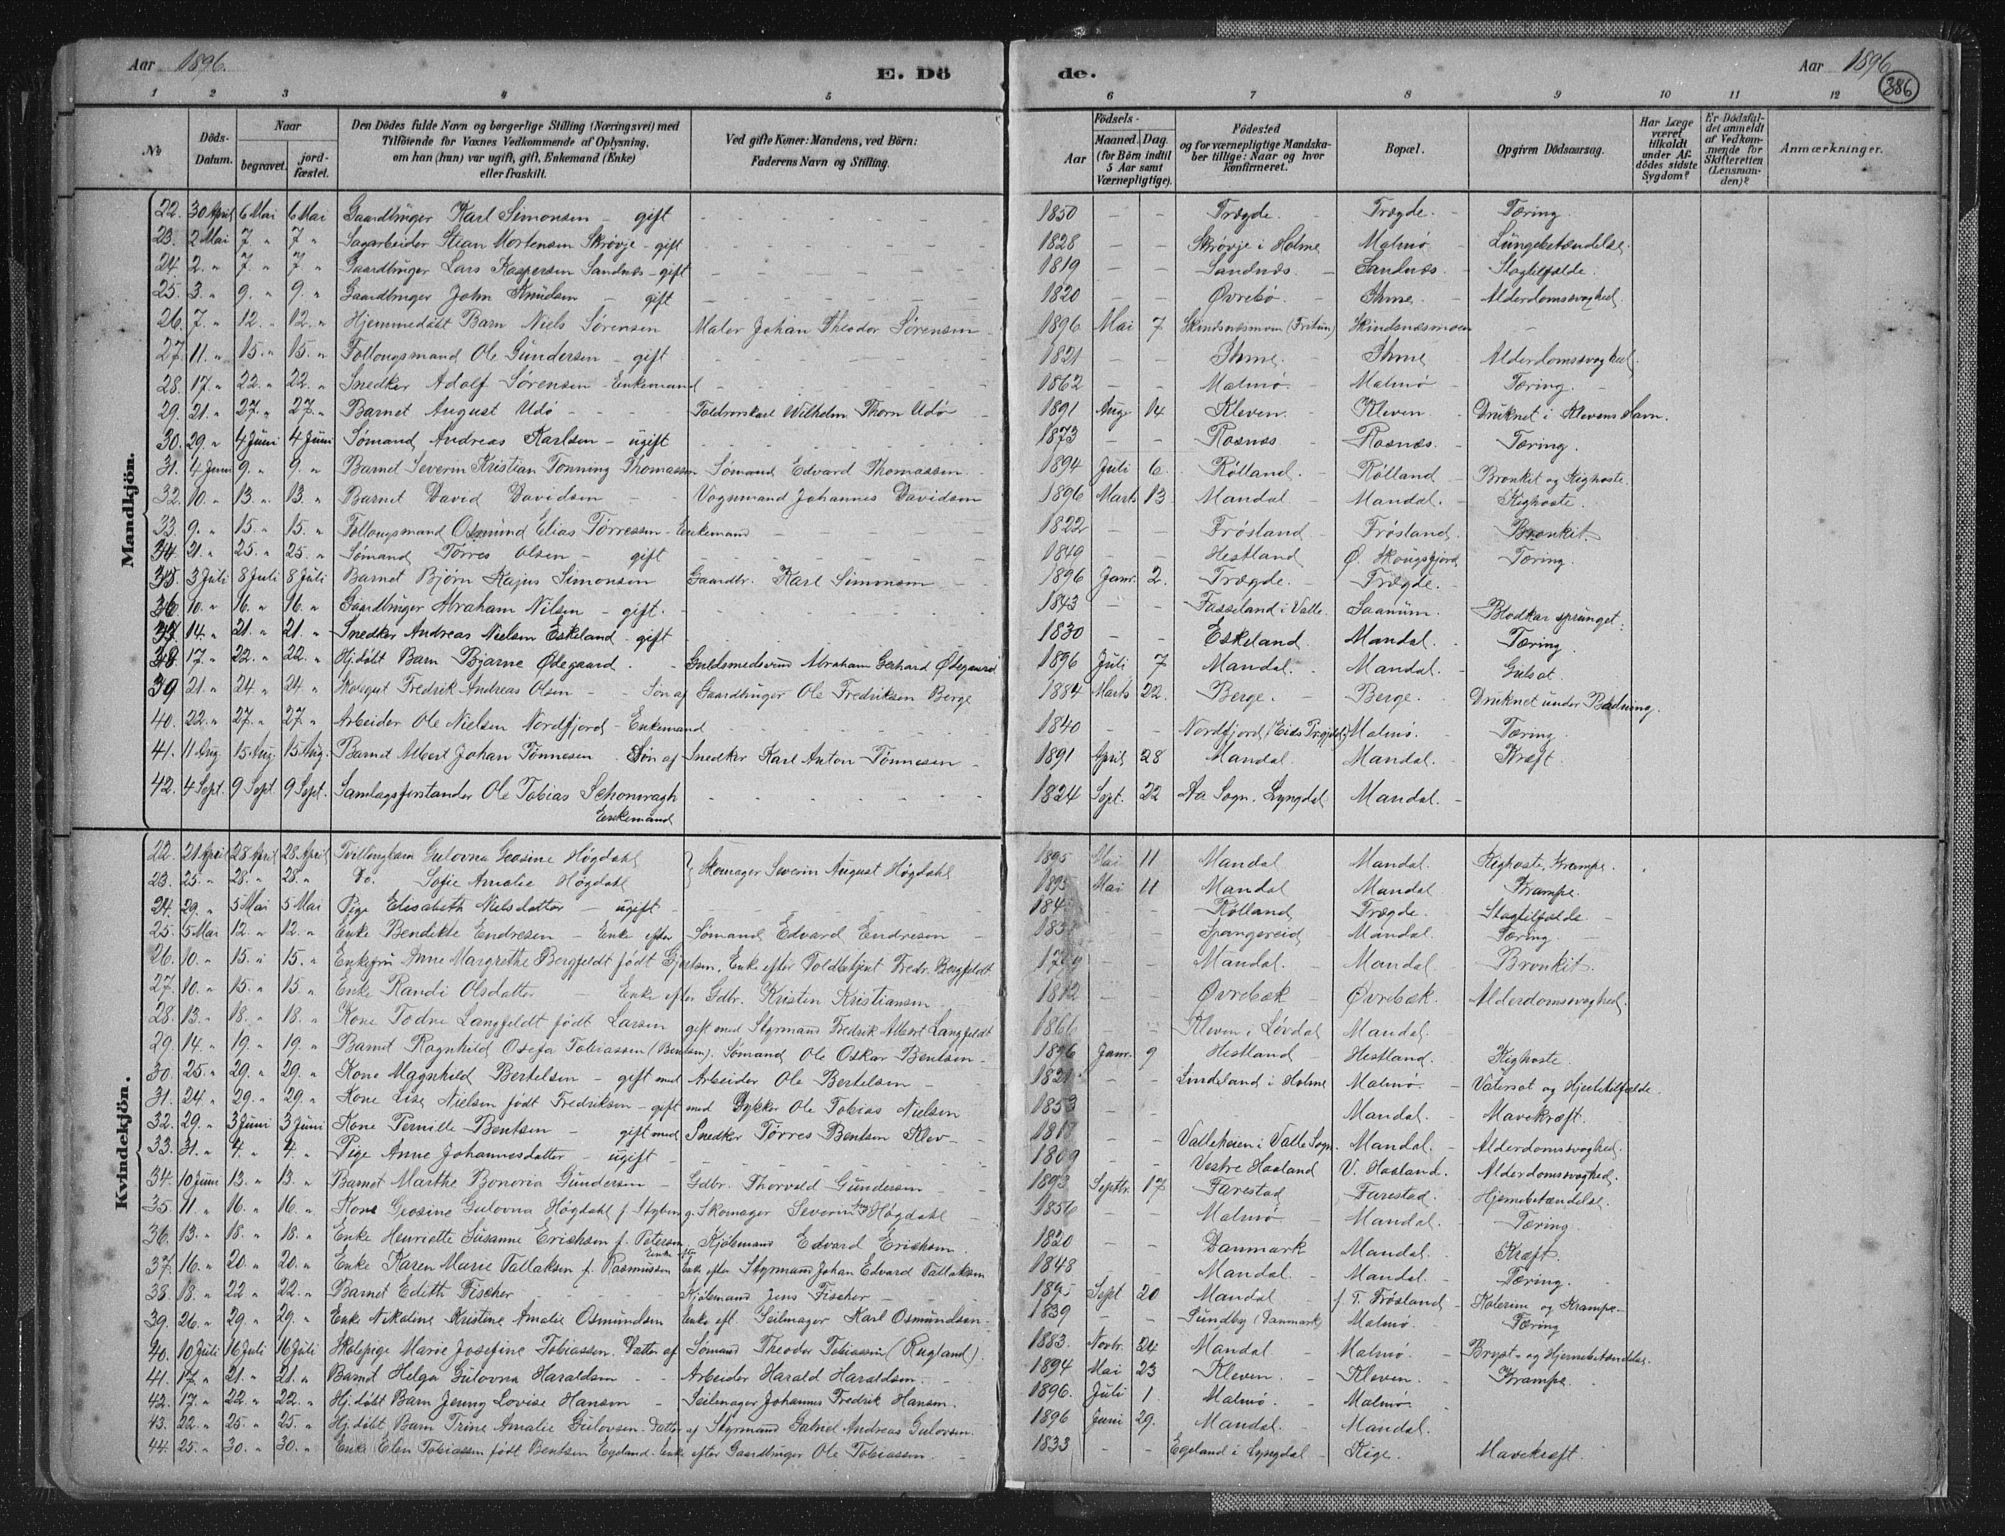 Aar 1896. E. Dö de. Aar 1896
386
1 2 3 4 5 6 7 8 9 10 11 12
No. Döds-Datum. Naar begravet. jord-fæstet. Den Dödes fulde Navn og borgerlige Stilling (Næringsvei) med Tilföiende for Voxnes Vedkommende af Oplysning, om han (hun) var ugift, gift, Enkemand (Enke) eller fraskilt. Ved gifte Koner: Mandens, ved Börn: Faderens Navn og Stilling. Födsels- Aar Maaned. Dag. (for Börn indtil 5 Aar samt Værnepligtige). Födested og for værnepligtige Mandskaber tillige: Naar og hvor konfirmeret. Bopæl. Opgiven Dödsaarsag. Har Læge været tilkaldt under Afdödes sidste Sygdom? Er Dödsfaldet anmeldt af Vedkommende for Skifteretten (Lensmanden)? Anmærkninger.
Mandkjön.
22. 30 April 6 Mai 6 Mai Gaardbruger Karl Simonsen – gift 1850 Trægde. Trægde. Tæring.
23. 2 Mai 7 " 7 " Sagarbeider Stian Mortensen Skrøvje – gift 1828 Skrøvje i Holme Malmø Lungebetændelse.
24. 2. " 7 " 7 " Gaardbruger Lars Kaspersen Sandnes – gift 1819 Sandnæs Sandnæs. Slagtilfælde.
25. 3. " 9. " 9. " Gaardbruger John Knudsen – gift 1820 Øvrebø. Ihme. Alderdomssvaghed.
26. 7. " 12. " 12. " Hjemmedøbt Barn Niels Sørensen Maler Johan Theodor Sørensen 1896 Mai 7 Skindsnæsmoen (Fritun) Skindsnæsmoen
27. 11. " 15. " 15. " Follougsmand Ole Gundersen – gift 1821 Ihme. Ihme Alderdomssvaghed.
28. 17. " 22. " 22. " Snedker Adolf Sørensen – Enkemand 1862 Malmø. Malmø Tæring.
29. 21. " 27. " 27. " Barnet August Udø Toldrorskarl Wilhelm Thorn Udø 1891 Aug. 14 Kleven. Kleven Druknet i Klevens Havn.
30. 29. " 4 Juni 4 Juni Sømand Andreas Karlsen – ugift 1873 Rosnæs Rosnæs. Tæring.
31. 4 Juni 9. " 9. " Barnet Severin Kristian Tonning Thomassen Sømand Edvard Thomassen 1894 Juli 6. Rølland. Rølland Bronkit og Kighoste.
32. 10. " 13. " 13. " Barnet David Davidsen Vognmand Johannes Davidsen 1896 Marts 13. Mandal Mandal. Kighoste.
33. 9. " 15. " 15. " Follougsmand Osmund Elias Tørressen – Enkemand 1822 Frøsland Frøsland. Bronkit.
34. 21. " 25. " 25. " Sømand Tørres Olsen – gift 1849 Hestland Ø. Skougsfjord Tæring.
35. 3 Juli 8 Juli 8 Juli Barnet Bjørn Kajus Simonsen Gaardbr. Karl Simonsen 1896 Janr. 2. Trægde. Trægde.
36. 10. " 16. " 16. " Gaardbruger Abraham Nilsen – gift. 1843 Fasseland i Valle. Saanum. Blodkar sprunget.
37. 14. " 21. " 21. " Snedker Andreas Nielsen Eskeland – gift 1830 Eskeland. Mandal. Tæring.
38. 17. " 22. " 22. " Hjdøbt Barn Bjarne Ødegaard. Guldsmedsvend Abraham Gerhard Ødegaard 1896 Juli 7 Mandal. Mandal. Gulsot.
39 21. " 24. " 24. " Skolegut Fredrik Andreas Olsen Søn af Gaardbruger Ole Fredriksen Berge 1884 Marts 22. Berge. Berge. Druknet under Badning.
40. 22. " 27. " 27. " Arbeider Ole Nielsen Nordfjord – Enkemand 1840 Nordfjord (Eids Prgjeld) Malmø. Tæring.
41. 11 Aug. 15 Aug. 15 Aug. Barnet Albert Johan Tønnesen. Søn af Snedker Karl Anton Tønnesen 1891 April 28 Mandal. Mandal. Kræft.
42. 4 Sept. 9 Sept. 9 Sept. Samlagsforstander Ole Tobias Schonwagh Enkemand 1824 Sept. 22 Aa Sogn. Lyngdal Mandal.
Kvindekjön.
22. 21 April 28 April 28 April Tvillingbarn Gulovna Geosine Høgdahl } Skomager Severin August Høgdahl 1895 Mai 11 Mandal Mandal. Kighoste, Krampe.
23. 25. " 28. " 28. " Do. Sofie Amalie Høgdahl 1895 Mai 11 Mandal Mandal. Krampe.
24. 29. " 5 Mai 5 Mai Pige Elisabeth Nielsdatter – ugift Rølland Trægde. Slagtilfælde
25. 5 Mai 12. " 12. " Enke Bendikte Endresen – Enke efter Sømand Edvard Endresen Spangereid Mandal Tæring.
26. 10. " 15. " 15. " Enkefru Anne Margrethe Bergfeldt født Gjertsen, Enke efter Toldbetjent Fredr. Bergfeldt Mandal. Mandal. Bronkit.
27. 10. " 15. " 15 " Enke Randi Olsdatter Enke efter Gdbr. Kristen Kristiansen 1812 Øvrebæk Øvrebæk. Alderdomssvaghed.
28. 13. " 18. " 18. " Kone Todne Langfeldt født Larsen gift med Styrmand Fredrik Albert Langfeldt 1866 Kleven i Løvdal Mandal.
29. 14. " 19. " 19. " Barnet Ragnhild Osefa Tobiassen (Bentsen). Sømand Ole Oskar Bentsen 1896 Janr. 9 Hestland Hestland. Kighoste.
30. 25 " 29. " 29. " Kone Magnhild Bertelsen – gift med Arbeider Ole Bertelsen 1821 Lindeland i Holme Malmø. Vatersot og Hjertetilfælde.
31. 24. " 29. " 29. " Kone Lise Nielsen født Fredriksen – gift med Dykker Ole Tobias Nielsen 1853 Mandal. Mavekræft.
32. 29. " 3 Juni 3 Juni Kone Pernille Bentsen – gift med Snedker Tørres Bentsen Klev Valleheien i Valle Sogn. Mandal. Alderdomssvaghed.
33. 31. " 4. " 4. " Pige Anne Johannesdatter – ugift 1809 Vestre Haaland V. Haaland. Alderdomssvaghed.
34. 10 Juni 13. " 13. " Barnet Marthe Bonoria Gundersen Gdbr. Thorvald Gundersen 1893 Septbr. 17. Farestad Farestad. Hjernebetændelse.
35. 11. " 16. " 16. " Kone Geosine Gulovna Høgdahl f. g. Skomager Severin Aug. Høgdahl 1856 Malmø Mandal. Tæring.
36. 13. " 18. " 18. " Enke Henriette Susanne Erichsen f. Petersen, Enke efter Kjøbmand Edvard Erichsen. 1820 Danmark Mandal. Kræft.
37. 16. " 20. " 20. " Enke Karen Marie Tallaksen f. Rasmussen Enke efter Styrmand Johan Edvard Tallaksen 1848 Mandal. Mandal. Tæring.
38. 18. " 22 " 22. " Barnet Edith Fischer Kjøbmand Jens Fischer 1895 Sept 20 Mandal f. T. Frøsland Katerine og Krampe
39. 26. " 29. " 29. " Enke Nikoline Kristine Amalie Osmundsen Enke eft. Seilmager Karl Osmundsen. 1839 Sundby (Danmark) Malmø. Tæring
40. 10 Juli 16 Juli 16 Juli Skolepige Marie Josefine Tobiassen. Datter af Sømand Theodor Tobiassen (Rugland). 1883. Novbr. 24 Mandal Malmø. Bryst- og Hjernebetændelse.
41. 17. " 21. " 21. " Barnet Helga Gulovna Haraldsen Arbeider Harald Haraldsen. 1894 Mai 23 Kleven. Kleven. Krampe.
42. 17. " 22. " 22. " Hj. døbt Barn Jenny Lovise Hansen Seilmager Johannes Fredrik Hansen. 1896. Juli 1. Malmø. Malmø.
43. 22. " 25. " 25. " Hj. døbt Barn Trine Amalie Gulovsen. Datter af Styrmand Gabriel Andreas Gulovsen. 1896 Juni 29. Mandal. Mandal.
44. 25. " 30. " 30. " Enke Elen Tobiassen født Bentsen Egeland. Enke efter Gaardbruger Ole Tobiassen. 1833 Egeland i Lyngdal Kige. Mavekræft